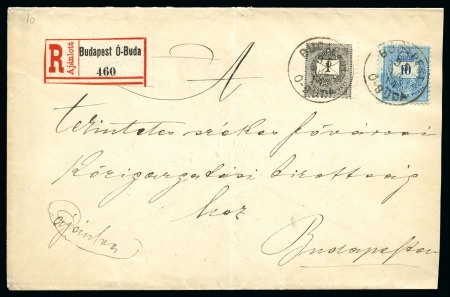 10
R
Ajánlott
Budapest Ó-Buda
460
BUDAPEST
Ó-BUDA
1
BUDAPEST
Ó-BUDA
10
A
tekintetes székes fővárosi
Közigazgatási bizottság
hoz
ajánlva
Budapesten